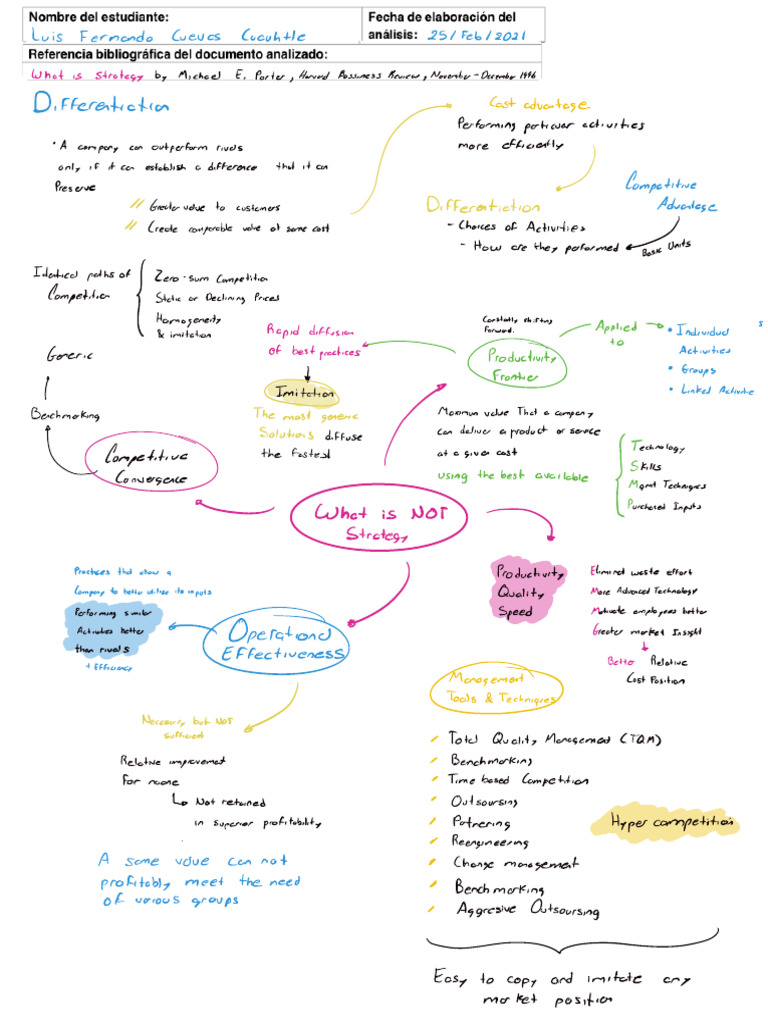 Nombre del estudiante:
Luis Fernando Cuevas Cuauhtle
Fecha de elaboración del
análisis: 25/Feb/2021
Referencia bibliográfica del documento analizado:
What is Strategy by Michael E. Porter, Harvard Bussiness Review, November-December 1996
Differentiction
• A company can outperform rivals
only if it can establish a difference that it can
Preserve
// Greater value to customers
// Create comparable value at same cost
Cost advantage
Performing particular activities
more efficiently
Differentiction
- Choices of Activities
- How are they performed
Competitive
Advantage
Basic Units
Identical paths of
Competition
Zero-sum Competition
Static or Declining Prices
Homogeneity
& imitation
Generic
Benchmarking
Competitive
Convergence
Rapid diffusion
of best practices
Imitation
The most generic
Solutions diffuse
the fastest
Constantly shifting
forward.
Productivity
Frontier
Applied
to
s
• Individual
Activities
• Groups
• Linked Activitie
Maximun value That a company
can deliver a product or service
at a given cost
using the best available
Technology
Skills
Mgmt Techniques
Purchased Inputs
What is NOT
Strategy
Productivity
Quality
Speed
Eliminat waste effort
More Advanced Technology
Motivate employees better
Greater market Insight
Better Relative
Cost Position
Practices that allow a
Company to better utilize its inputs
Performing similar
Activities better
than rivals
+ Efficiency
Operational
Effectiveness
Necessary but NOT
sufficient
Relative improvement
For noone
Not retained
in superior profitability
A same value can not
profitably meet the need
of various groups
Management
Tools & Techniques
Total Quality Management (TQM)
Benchmarking
Time based Competition
Outsoursing
Patnering
Reengineering
Change management
Benchmorking
Aggresive Outsoursing
Hyper competition
Easy to copy and imitate any
market position